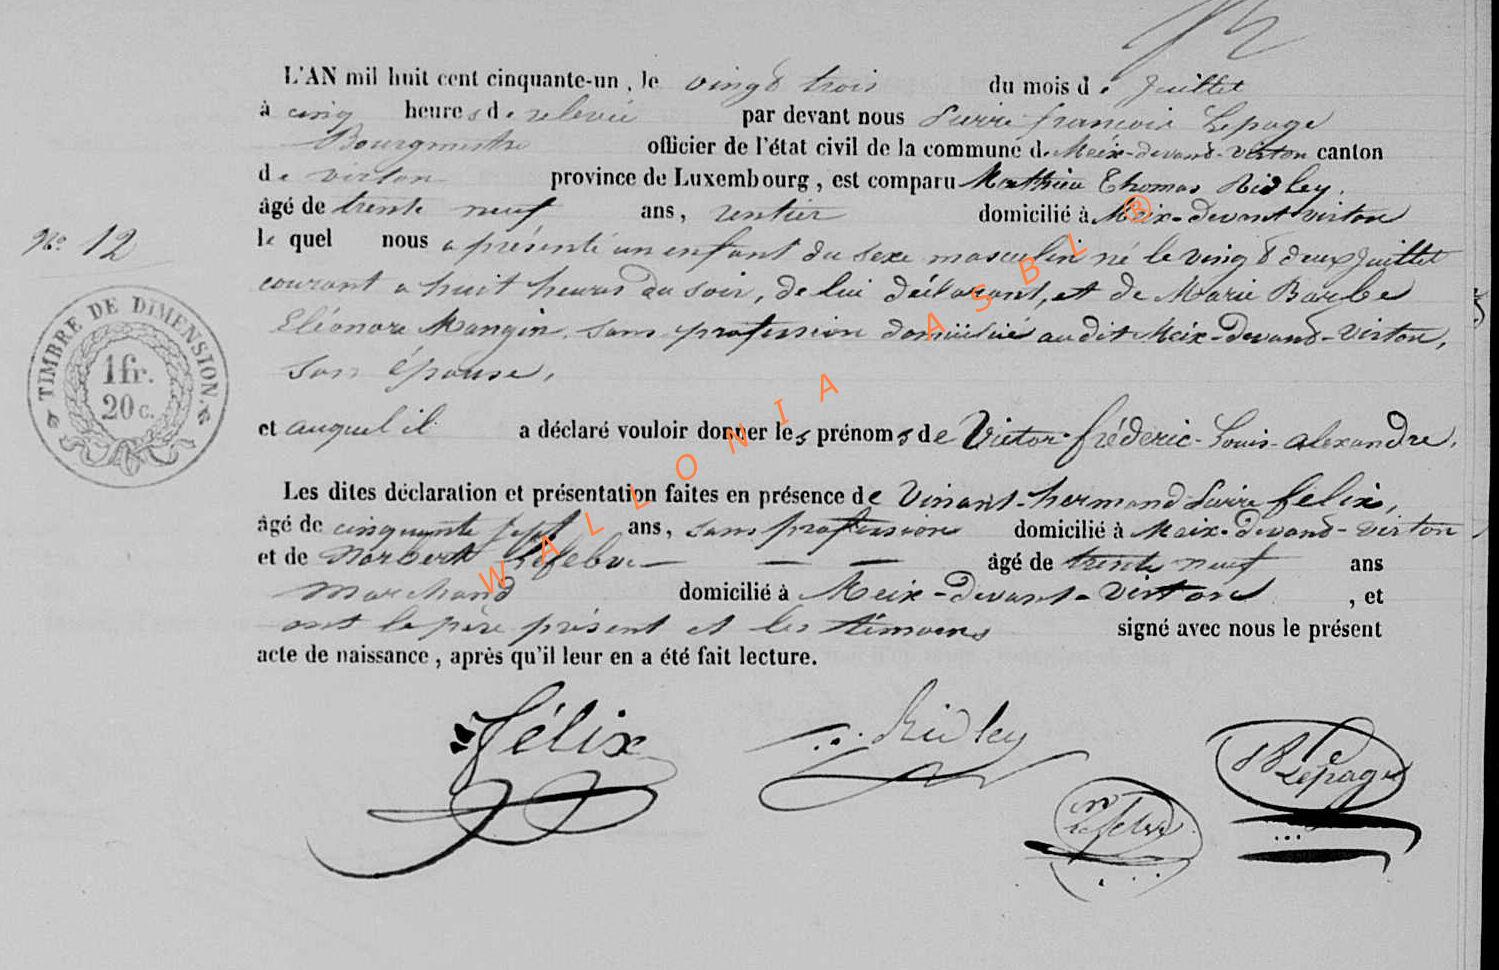 L'AN mil huit cent cinquante-un, le vingt trois du mois de Juillet
à cinq heures de relevée par devant nous Pierre françois Lepage
Bourgmestre officier de l'état civil de la commune de Meix-devant-virton canton
de virton province de Luxembourg, est comparu Mathieu Thomas Ridley.
âgé de trente neuf ans, rentier domicilié à Meix-devant virton
le quel nous a présenté un enfant du sexe masculin né le vingt deux Juillet
No. 12
courant a huit heures du soir, de lui déclarant, et de Marie Barbe
Eléonore Mangin, sans profession domiciliée audit Meix-devant-virton,
son épouse,
TIMBRE DE DIMENSION.
1 fr.
20 c.
et auquel il a déclaré vouloir donner les prénoms de Victor-fréderic-Louis-alexandre.
Les dites déclaration et présentation faites en présence de hermand Pierre felix,
âgé de cinquante sept ans, sans profession domicilié à Meix-devant-virton
et de Norbert Lefebvre — — — âgé de trente neuf ans
marchand domicilié à Meix-devant-virton, et
ont le père présent et les témoins signé avec nous le présent
acte de naissance, après qu'il leur en a été fait lecture.
félix
Ridley
n lefebvre
Lepage
WALLONIA ASBL ®